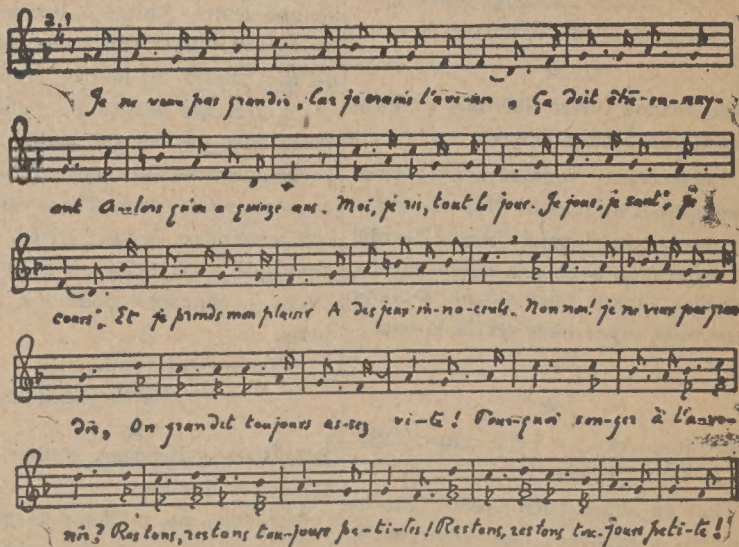 2.1
Je ne veux pas grandir, Car je crains l'ave-nir. Ça doit être en-nuy-
ant A-lors qu'on a quinze ans. Moi, je ris, tout le jour. Je joue, je saut', je
cours'. Et je prends mon plaisir A des jeux in-no-cents. Non non! je ne veux pas gran
dir, On grandit toujours as-sez vi-te! Pour-quoi son-ger à l'a-ve-
nir? Restons, restons tou-jours pe-ti-tes! Restons, restons tou-jours peti-te!